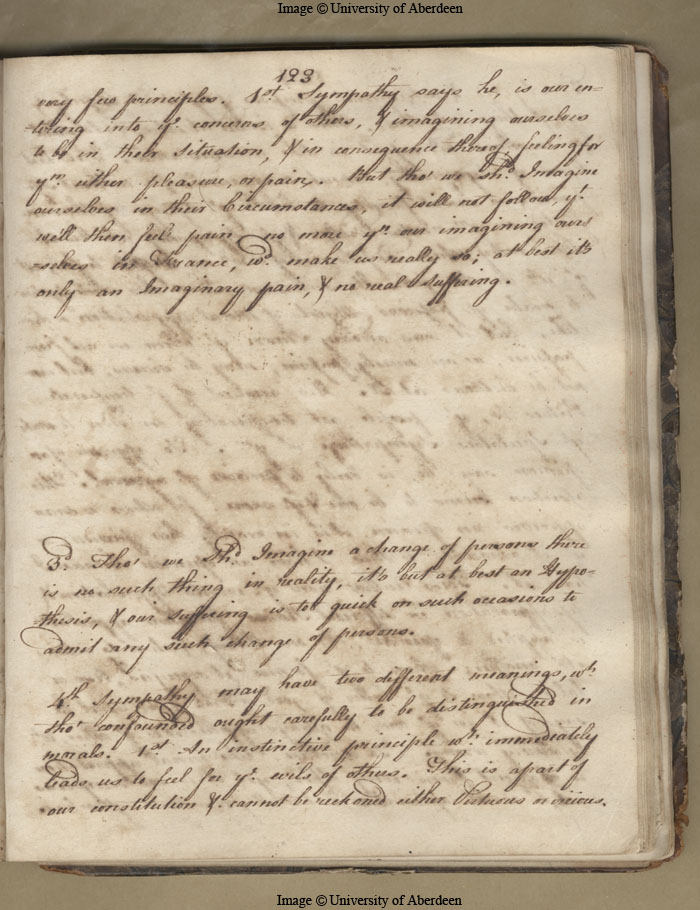 Image © University of Aberdeen
123
very few principles. 1st. Sympathy says he, is our en-
-tering into ye. concerns of others, & imagining ourselves
to be in their situation, & in consequence thereof feeling for
ym. either pleasure, or pain. But tho' we shd. Imagine
ourselves in their Circumstances, it will not follow, yt.
we'll then feel pain no more yn. our imagining ours
-selves in France, wd. make us really so; at best it's
only an Imaginary pain, & no real suffering.
3d. Tho' we Shd. Imagine a change of persons there
is no such thing in reality, it's but at best an Hypo-
thesis, & our suffering is to quick on such occasions to
admit any such change of persons.
4th. Sympathy may have two different meanings, wh.
tho' confounded ought carefully to be distinguished in
morals. 1st. An instinctive principle wc. immediately
leads us to feel for ye. evils of others. This is a part of
our constitution & cannot be reckoned either Virtuous or vicious.
Image © University of Aberdeen